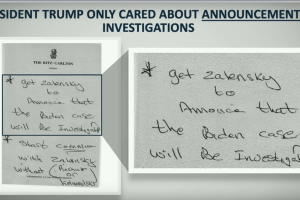 SIDENT TRUMP ONLY CARED ABOUT ANNOUNCEMENT
INVESTIGATIONS
THE RITZ-CARLTON
* get Zalensky
to
Annouce that
the Biden case
will Be Investigated
* start
with Zalensky
without
* get Zalensky
to
Annouce that
the Biden case
will Be Investigat